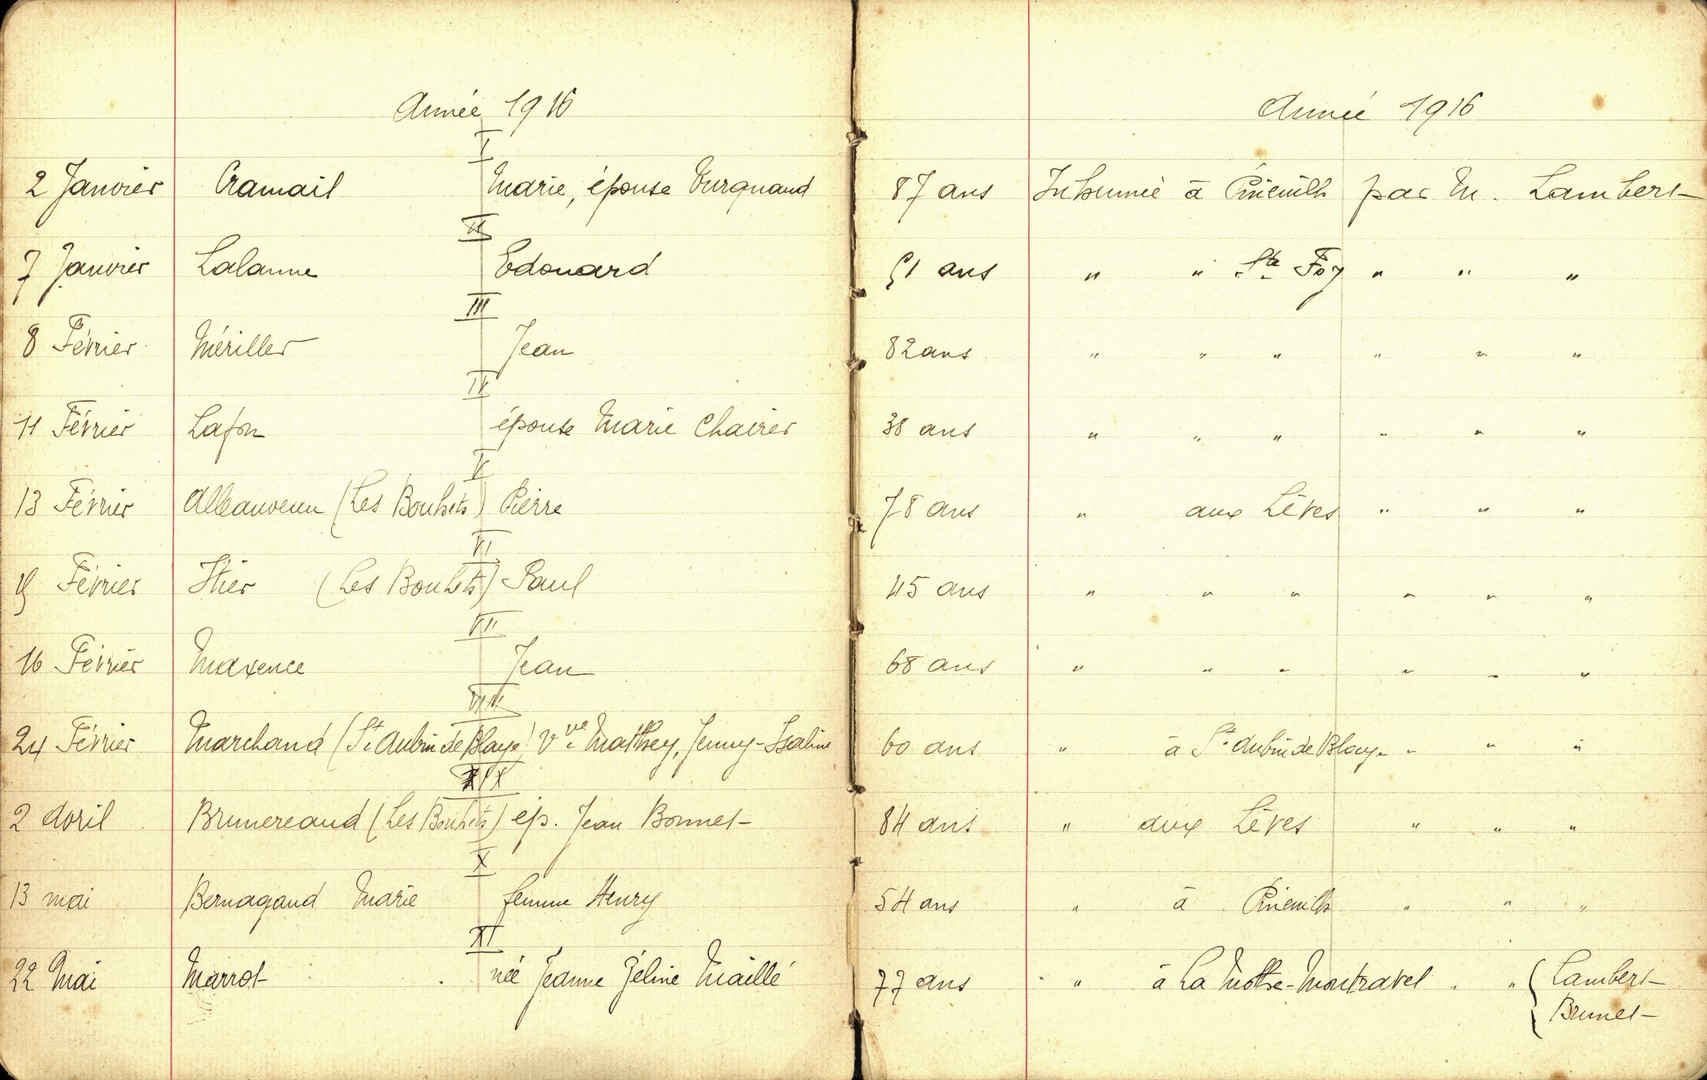 Année 1916
I
2 Janvier Cramail Marie, épouse Turquand
II
7 Janvier Lalanne Edouard
III
8 Février Mériller Jean
IV
11 Février Lafon épouse Marie Chairer
V
13 Février (Les Bouhets) Pierre
VI
15 Février Itier (Les Bouhets) Paul
VII
16 Février Maxence Jean
VIII
24 Février Marchand (St. Aubin de Blaye) Vve Mathey, Jenny-Isaline
IX
2 Avril Brunereaud (Les Bouhets) ép. Jean Bonnet
X
13 mai Bernagaud Marie femme Henry
XI
22 Mai Marrot née Jeanne Zéline Maillé
Année 1916
87 ans Inhumée à Pineuilh par M. Lambert
51 ans " " Ste Foy " " "
82 ans " " " " " "
38 ans " " " " " "
78 ans " aux Lèves " " "
45 ans " " " " " "
68 ans " " " " " "
60 ans " à St. Aubin de Blaye " " "
84 ans " aux Lèves " " "
54 ans " à Pineuilh " " "
77 ans " à La Mothe-Montravel " " { Lambert
Brunet